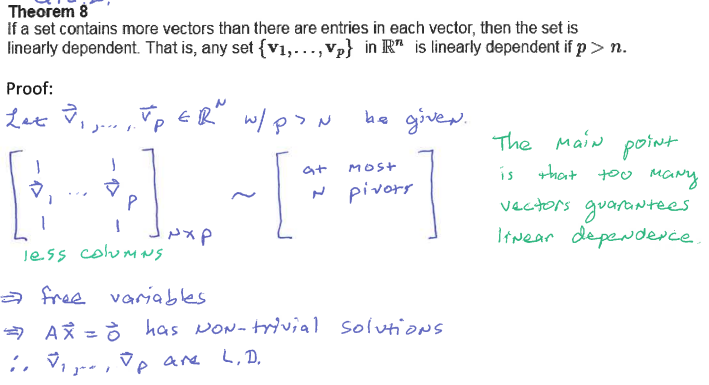 Theorem 8
If a set contains more vectors than there are entries in each vector, then the set is
linearly dependent. That is, any set {v₁,...,vₚ} in ℝⁿ is linearly dependent if p > n.
Proof:
Let v⃗₁,...,v⃗ₚ ∈ ℝᴺ w/ p > N be given.
[v⃗₁ ... v⃗ₚ]N×p ~ [at most N pivots]
less columns
The main point
is that too many
vectors guarantees
linear dependence.
⇒ free variables
⇒ Ax⃗ = 0⃗ has non-trivial solutions
∴ v⃗₁,...,v⃗ₚ are L.D.